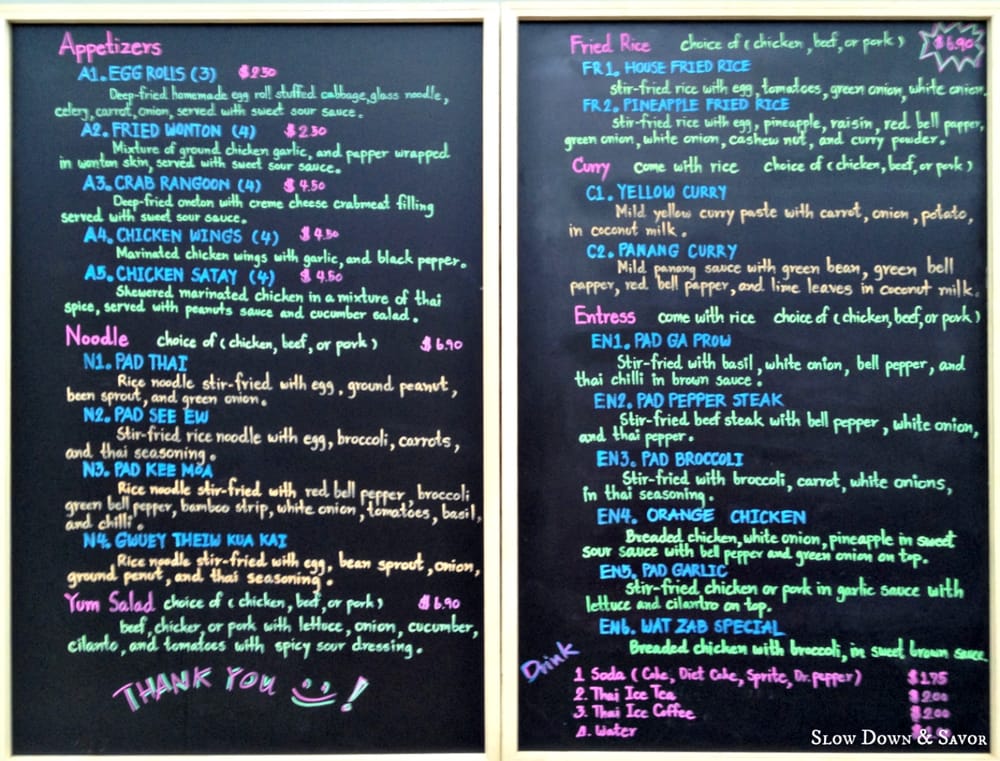 Appetizers
A1. EGG ROLLS (3) $2.50
Deep-fried homemade egg roll stuffed cabbage, glass noodle,
celery, carrot, onion, served with sweet sour sauce.
A2. FRIED WONTON (4) $2.50
Mixture of ground chicken garlic, and papper wrapped
in wonton skin, served with sweet sour sauce.
A3. CRAB RANGOON (4) $4.50
Deep-fried oneton with creme cheese crabmeat filling
served with sweet sour sauce.
A4. CHICKEN WINGS (4) $4.50
Marinated chicken wings with garlic, and black pepper.
A5. CHICKEN SATAY (4) $4.50
Skewered marinated chicken in a mixture of thai
spice, served with peanuts sauce and cucumber salad.
Noodle choice of (chicken, beef, or pork) $6.90
N1. PAD THAI
Rice noodle stir-fried with egg, ground peanut,
been sprout, and green onion.
N2. PAD SEE EW
Stir-fried rice noodle with egg, broccoli, carrots,
and thai seasoning.
N3. PAD KEE MOA
Rice noodle stir-fried with red bell pepper, broccoli
green bell pepper, bamboo strip, white onion, tomatoes, basil,
and chilli.
N4. GWUEY THEIW KUA KAI
Rice noodle stir-fried with egg, bean sprout, onion,
ground penut, and thai seasoning.
Yum Salad choice of (chicken, beef, or pork) $6.90
beef, chicker, or pork with lettuce, onion, cucumber,
cilanto, and tomatoes with spicy sour dressing.
THANK YOU !
Fried Rice choice of (chicken, beef, or pork) $6.90
FR1. HOUSE FRIED RICE
stir-fried rice with egg, tomatoes, green onion, white onion.
FR2. PINEAPPLE FRIED RICE
stir-fried rice with egg, pineapple, raisin, red bell papper,
green onion, white onion, cashew nut, and curry powder.
Curry come with rice choice of (chicken, beef, or pork)
C1. YELLOW CURRY
Mild yellow curry paste with carrot, onion, potato,
in coconut milk.
C2. PANANG CURRY
Mild panang sauce with green bean, green bell
papper, red bell papper, and lime leaves in coconut milk.
Entress come with rice choice of (chicken, beef, or pork)
EN1. PAD GA PROW
Stir-fried with basil, white onion, bell pepper, and
thai chilli in brown sauce.
EN2. PAD PEPPER STEAK
Stir-fried beef steak with bell pepper, white onion,
and thai pepper.
EN3. PAD BROCCOLI
Stir-fried with broccoli, carrot, white onions,
in thai seasoning.
EN4. ORANGE CHICKEN
Breaded chicken, white onion, pineapple in sweet
sour sauce with bell pepper and green onion on top.
EN5. PAD GARLIC
Stir-fried chicken or pork in garlic sauce with
lettuce and cilantro on top.
EN6. WAT ZAB SPECIAL
Breaded chicken with broccoli, in sweet brown sauce
Drink
1 Soda (Coke, Diet Coke, Sprite, Dr. pepper) $1.75
2. Thai Ice Tea $2.00
3. Thai Ice Coffee $2.00
4. Water
Slow Down & Savor